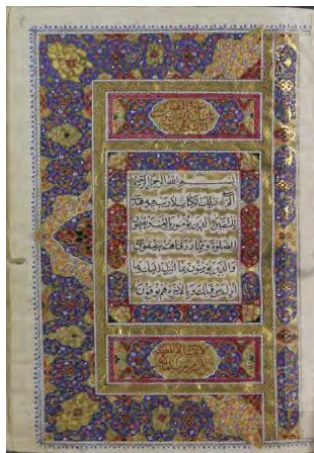 بسم الله الرحمن الرحيم
الم ذلك الكتاب لا ريب فيه هدى
للمتقين الذين يؤمنون بالغيب ويقيمون
الصلوة ومما رزقناهم ينفقون
والذين يؤمنون بما انزل اليك وما
انزل من قبلك وبالاخرة هم يوقنون